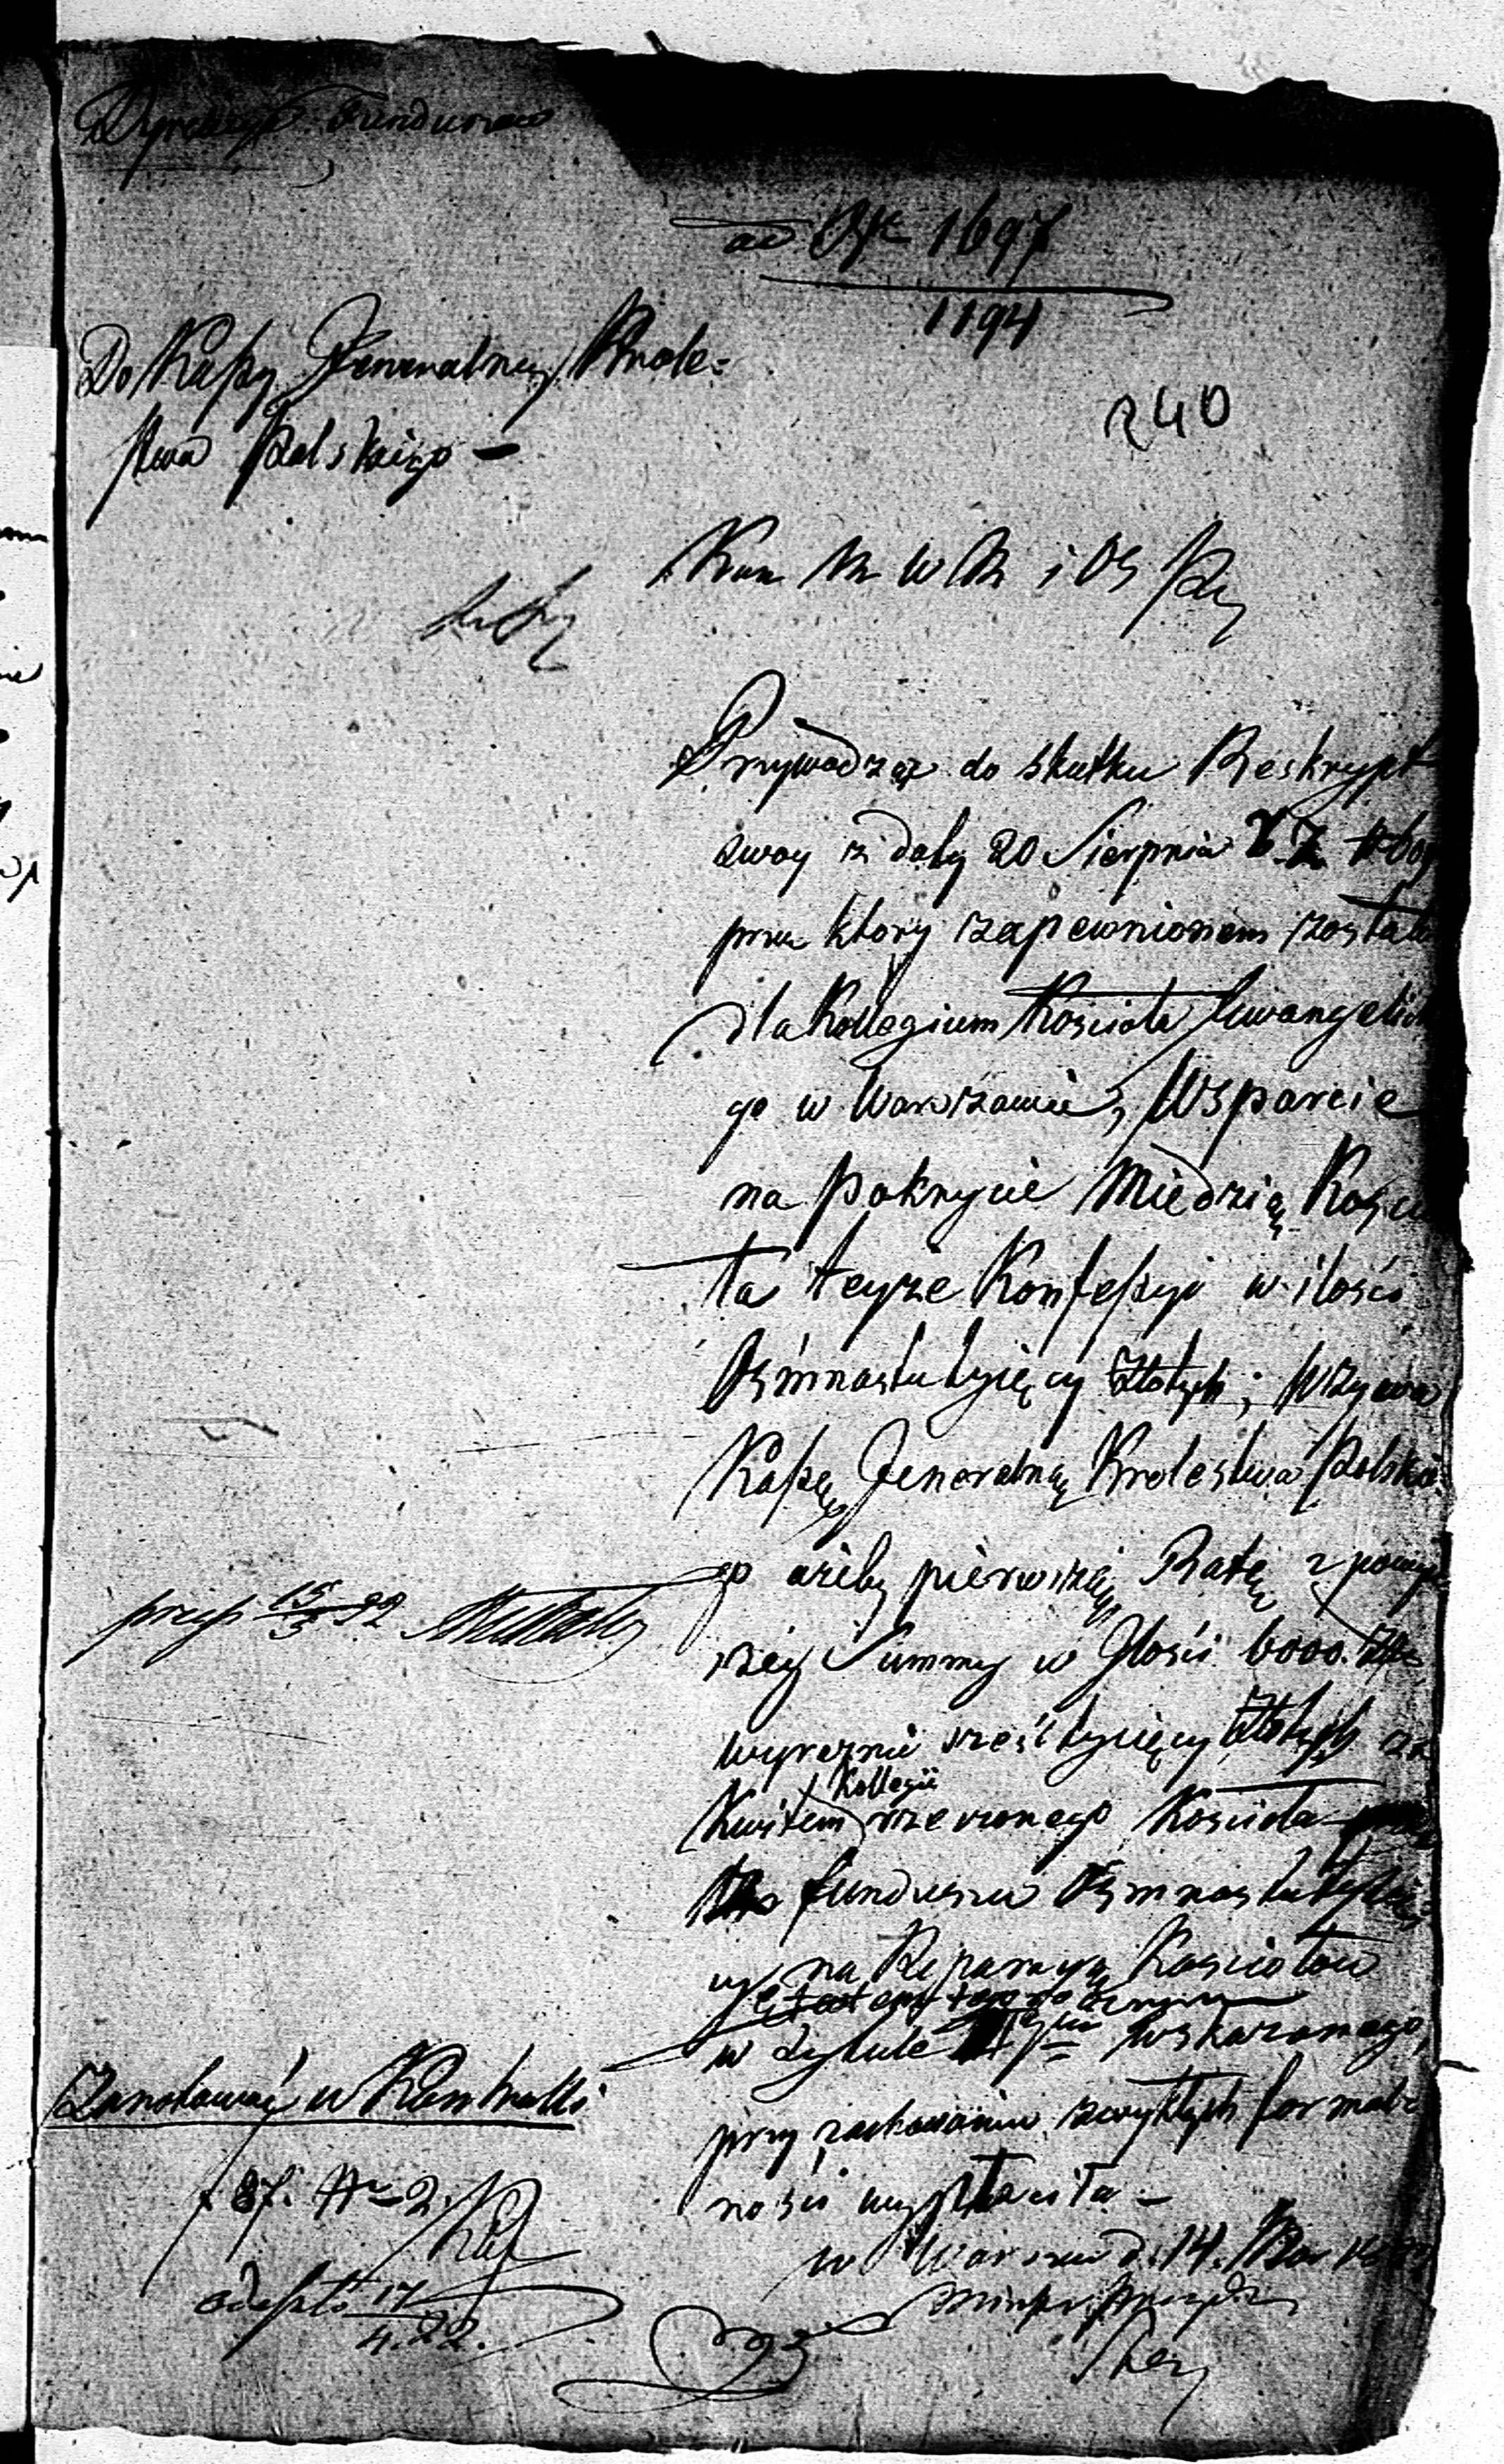 Dyrekcya Funduszów
ad No 1697
1194
Do Kassy Generalney Krole=
stwa Polskiego —
240
Kom R W R i OP
Przywodząc do skutku Reskrypt
swoy z daty 20 Sierpnia
przez który zapewnionem zostało
dla Kollegium Kościoła Ewangelick
go w Warszawie, Wsparcie
na pokrycie Miedzią Kościo
ła teyże Konfessyi w ilości
Ośmnastu tysięcy złotych; Wzywa
Kassę Jeneralną Krolestwa Polskie=
go ażeby pierwszą Ratę z powyż
szey Summy w Ilości 6000. Złp
wyraźnie sześć tysięcy Złotych za
Kollegii
Kwitem rzeczonego Kościoła
funduszu Ośmnastu tysięcy
na Reparacyą Kosciołow
w tytule wskazanego
przy zachowaniu zwykłych formal=
ności wypłaciła —
w Warszawie d. 14. Mar
Minister Prezyd
przys 15/3 22
Zanotować w Kontrolli
f 87. No 2.
odesłano 17/4. 22.